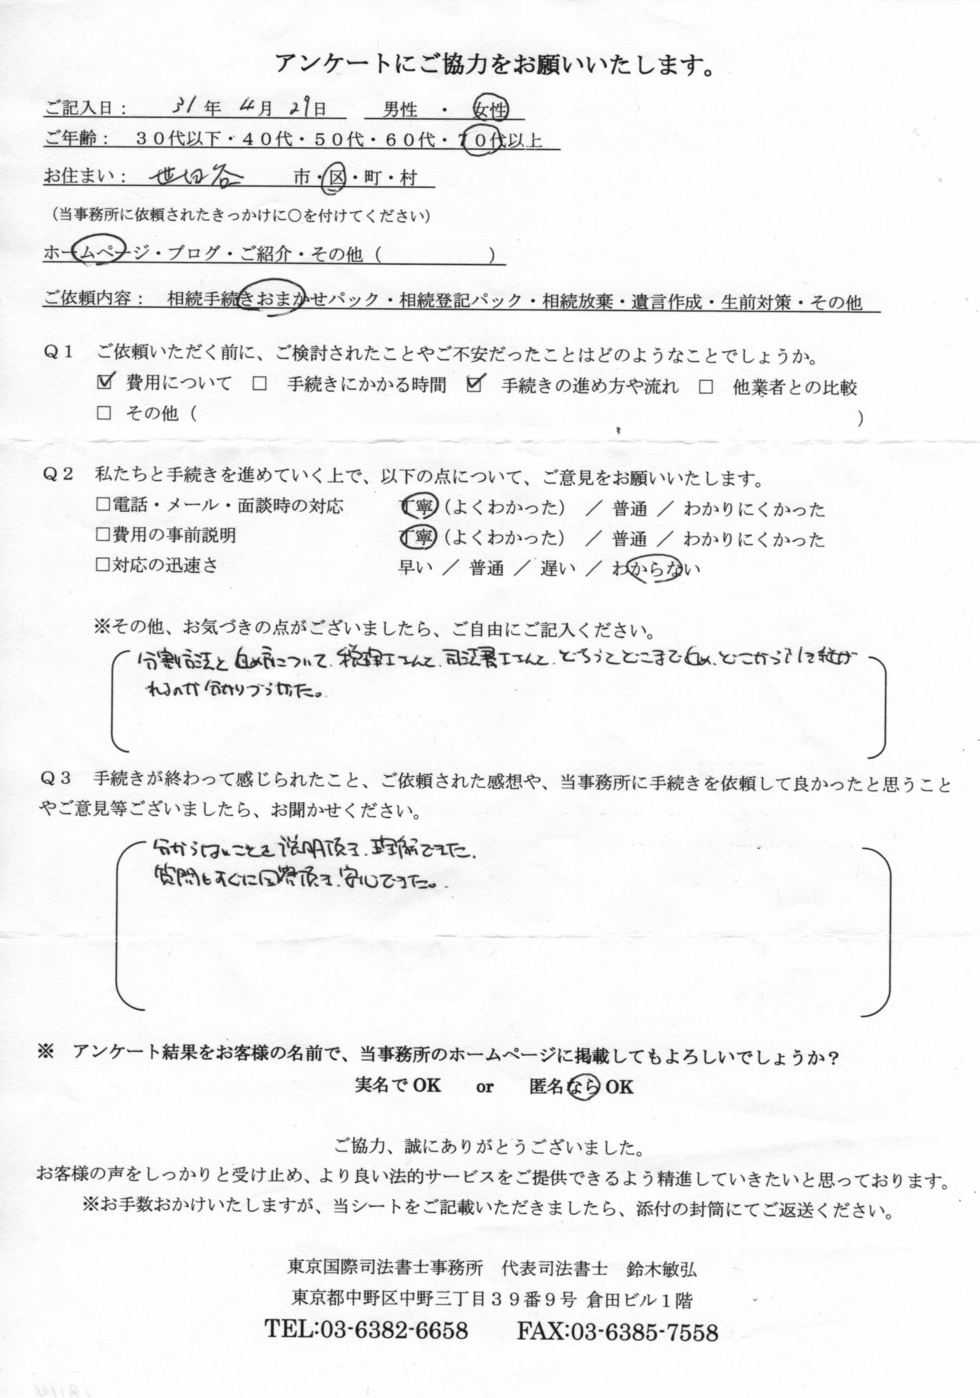 アンケートにご協力をお願いいたします。
ご記入日： 31年 4月 29日 男性 ・ 女性
ご年齢： 30代以下・40代・50代・60代・70代以上
お住まい： 世田谷 市・区・町・村
（当事務所に依頼されたきっかけに〇を付けてください）
ホームページ・ブログ・ご紹介・その他（ ）
ご依頼内容： 相続手続きおまかせパック・相続登記パック・相続放棄・遺言作成・生前対策・その他
Q1 ご依頼いただく前に、ご検討されたことやご不安だったことはどのようなことでしょうか。
☑ 費用について □ 手続きにかかる時間 ☑ 手続きの進め方や流れ □ 他業者との比較
□ その他（ ）
Q2 私たちと手続きを進めていく上で、以下の点について、ご意見をお願いいたします。
□電話・メール・面談時の対応 丁寧（よくわかった） ／ 普通 ／ わかりにくかった
□費用の事前説明 丁寧（よくわかった） ／ 普通 ／ わかりにくかった
□対応の迅速さ 早い ／ 普通 ／ 遅い ／ わからない
※その他、お気づきの点がございましたら、ご自由にご記入ください。
分割方法と について、税理士さんと、司法書士さんと、どちらでどこまで 、どこから
れるのか分かりづらかった。
Q3 手続きが終わって感じられたこと、ご依頼された感想や、当事務所に手続きを依頼して良かったと思うこと
やご意見等ございましたら、お聞かせください。
分からないことを説明頂き、理解できた。
質問もすぐに回答頂き、安心できた。
※ アンケート結果をお客様の名前で、当事務所のホームページに掲載してもよろしいでしょうか？
実名でOK or 匿名ならOK
ご協力、誠にありがとうございました。
お客様の声をしっかりと受け止め、より良い法的サービスをご提供できるよう精進していきたいと思っております。
※お手数おかけいたしますが、当シートをご記載いただきましたら、添付の封筒にてご返送ください。
東京国際司法書士事務所 代表司法書士 鈴木敏弘
東京都中野区中野三丁目39番9号 倉田ビル1階
TEL:03-6382-6658 FAX:03-6385-7558